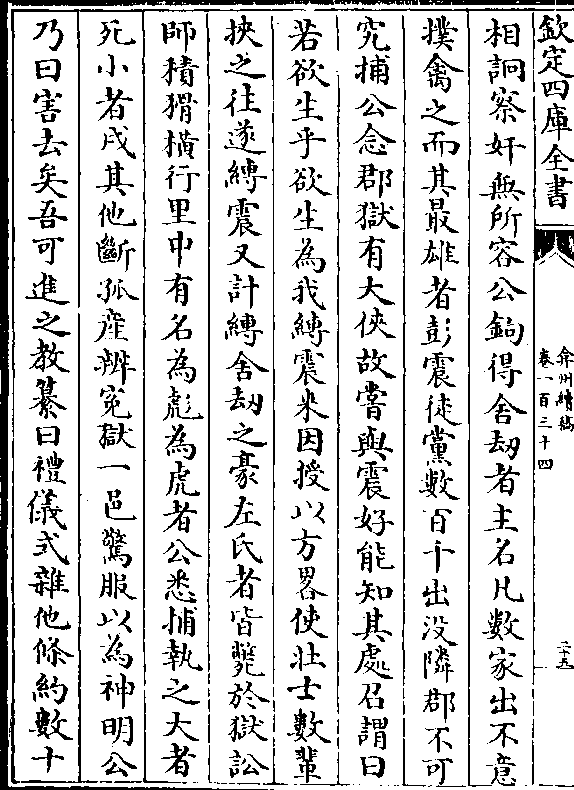 欽定四庫全書
弇州續稿
卷一百三十四
二十五
相詗察奸無所容公鉤得舍刼者主名凡數家出不意
撲禽之而其最雄者彭震徒黨數百千出沒隣郡不可
究捕公念郡獄有大俠故嘗與震好能知其處召謂曰
若欲生乎欲生為我縛震來因授以方畧使壯士數輩
挾之往遂縛震又計縛舍刼之豪左氏者皆斃於獄訟
師積猾橫行里中有名為彪為虎者公悉捕執之大者
死小者戍其他斷孤産辨冤獄一邑驚服以為神明公
乃曰害去矣吾可進之教纂曰禮儀式雜他條約數十